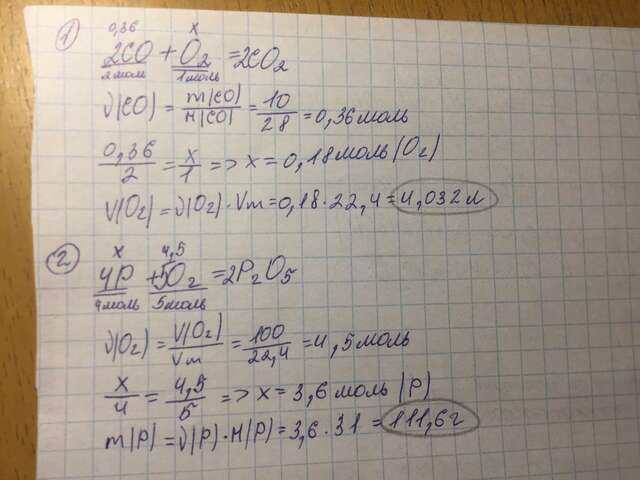 1)
0,36 x
2CO + O₂ = 2CO₂
2моль 1моль
ν(CO) = m(CO)/M(CO) = 10/28 = 0,36 моль
0,36/2 = x/1 => x = 0,18 моль (O₂)
V(O₂) = ν(O₂) · Vm = 0,18 · 22,4 = 4,032 л
2)
x 4,5
4P + 5O₂ = 2P₂O₅
4моль 5моль
ν(O₂) = V(O₂)/Vm = 100/22,4 = 4,5 моль
x/4 = 4,5/5 => x = 3,6 моль (P)
m(P) = ν(P) · M(P) = 3,6 · 31 = 111,6 г